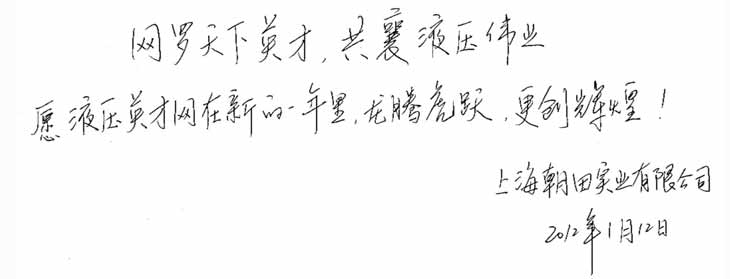 网罗天下英才，共襄液压伟业
愿液压英才网在新的一年里，龙腾虎跃，更创辉煌！
上海朝田实业有限公司
2012年1月12日